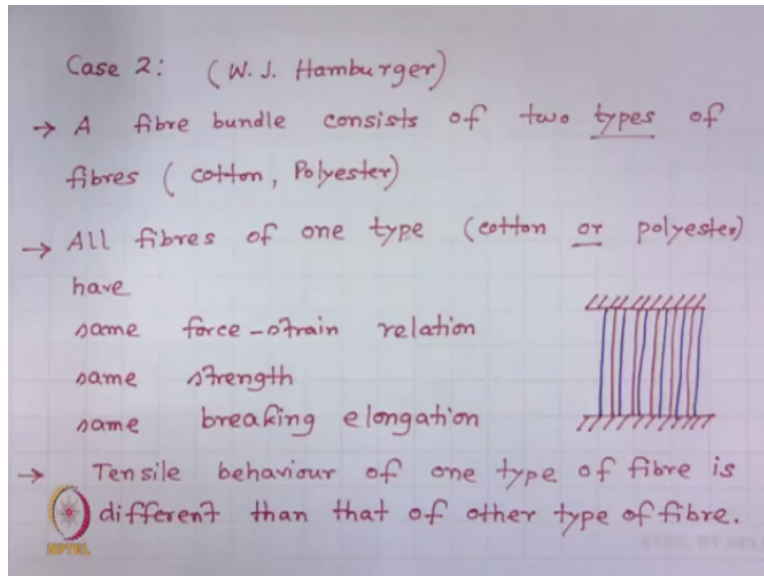 Case 2: (W. J. Hamburger)
→ A fibre bundle consists of two types of
fibres (cotton, Polyester)
→ All fibres of one type (cotton or polyester)
have
same force-strain relation
same strength
same breaking elongation
→ Tensile behaviour of one type of fibre is
different than that of other type of fibre.
NPTEL
ETSC, IIT DELHI